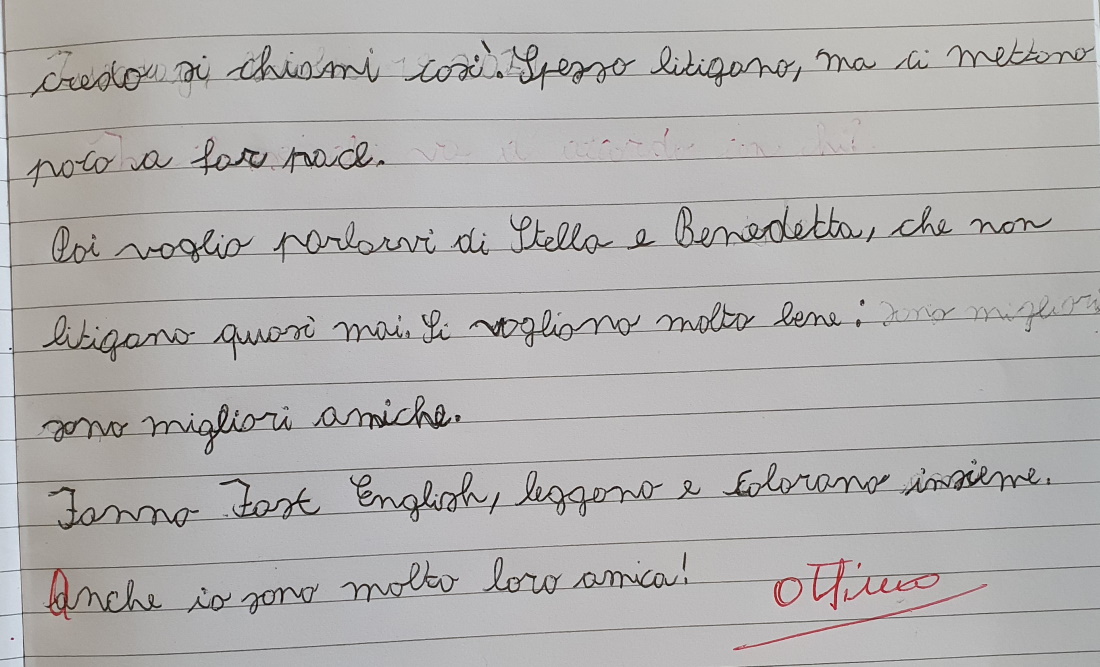 credo si chiami così. Spesso litigano, ma ci mettono
poco a far pace.
Poi voglio parlarvi di Stella e Benedetta, che non
litigano quasi mai. Si vogliono molto bene: sono migliori
sono migliori amiche.
Fanno Fast English, leggono e colorano insieme.
Anche io sono molto loro amica!
Ottimo